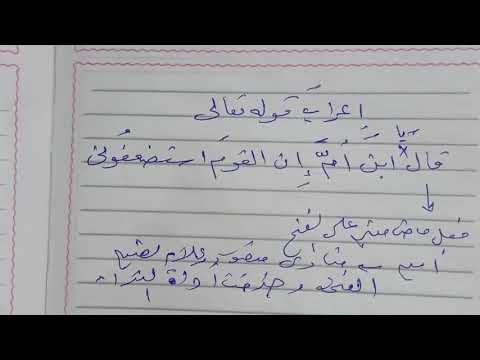 اعراب قوله تعالى
يا
قال ابنَ أُمَّ إِن القومَ استضعفُونى
فعل ماض مبنى على الفتح
اسم منادى منصوب وعلامة نصبه
الفتحة وحذفت أداة النداء